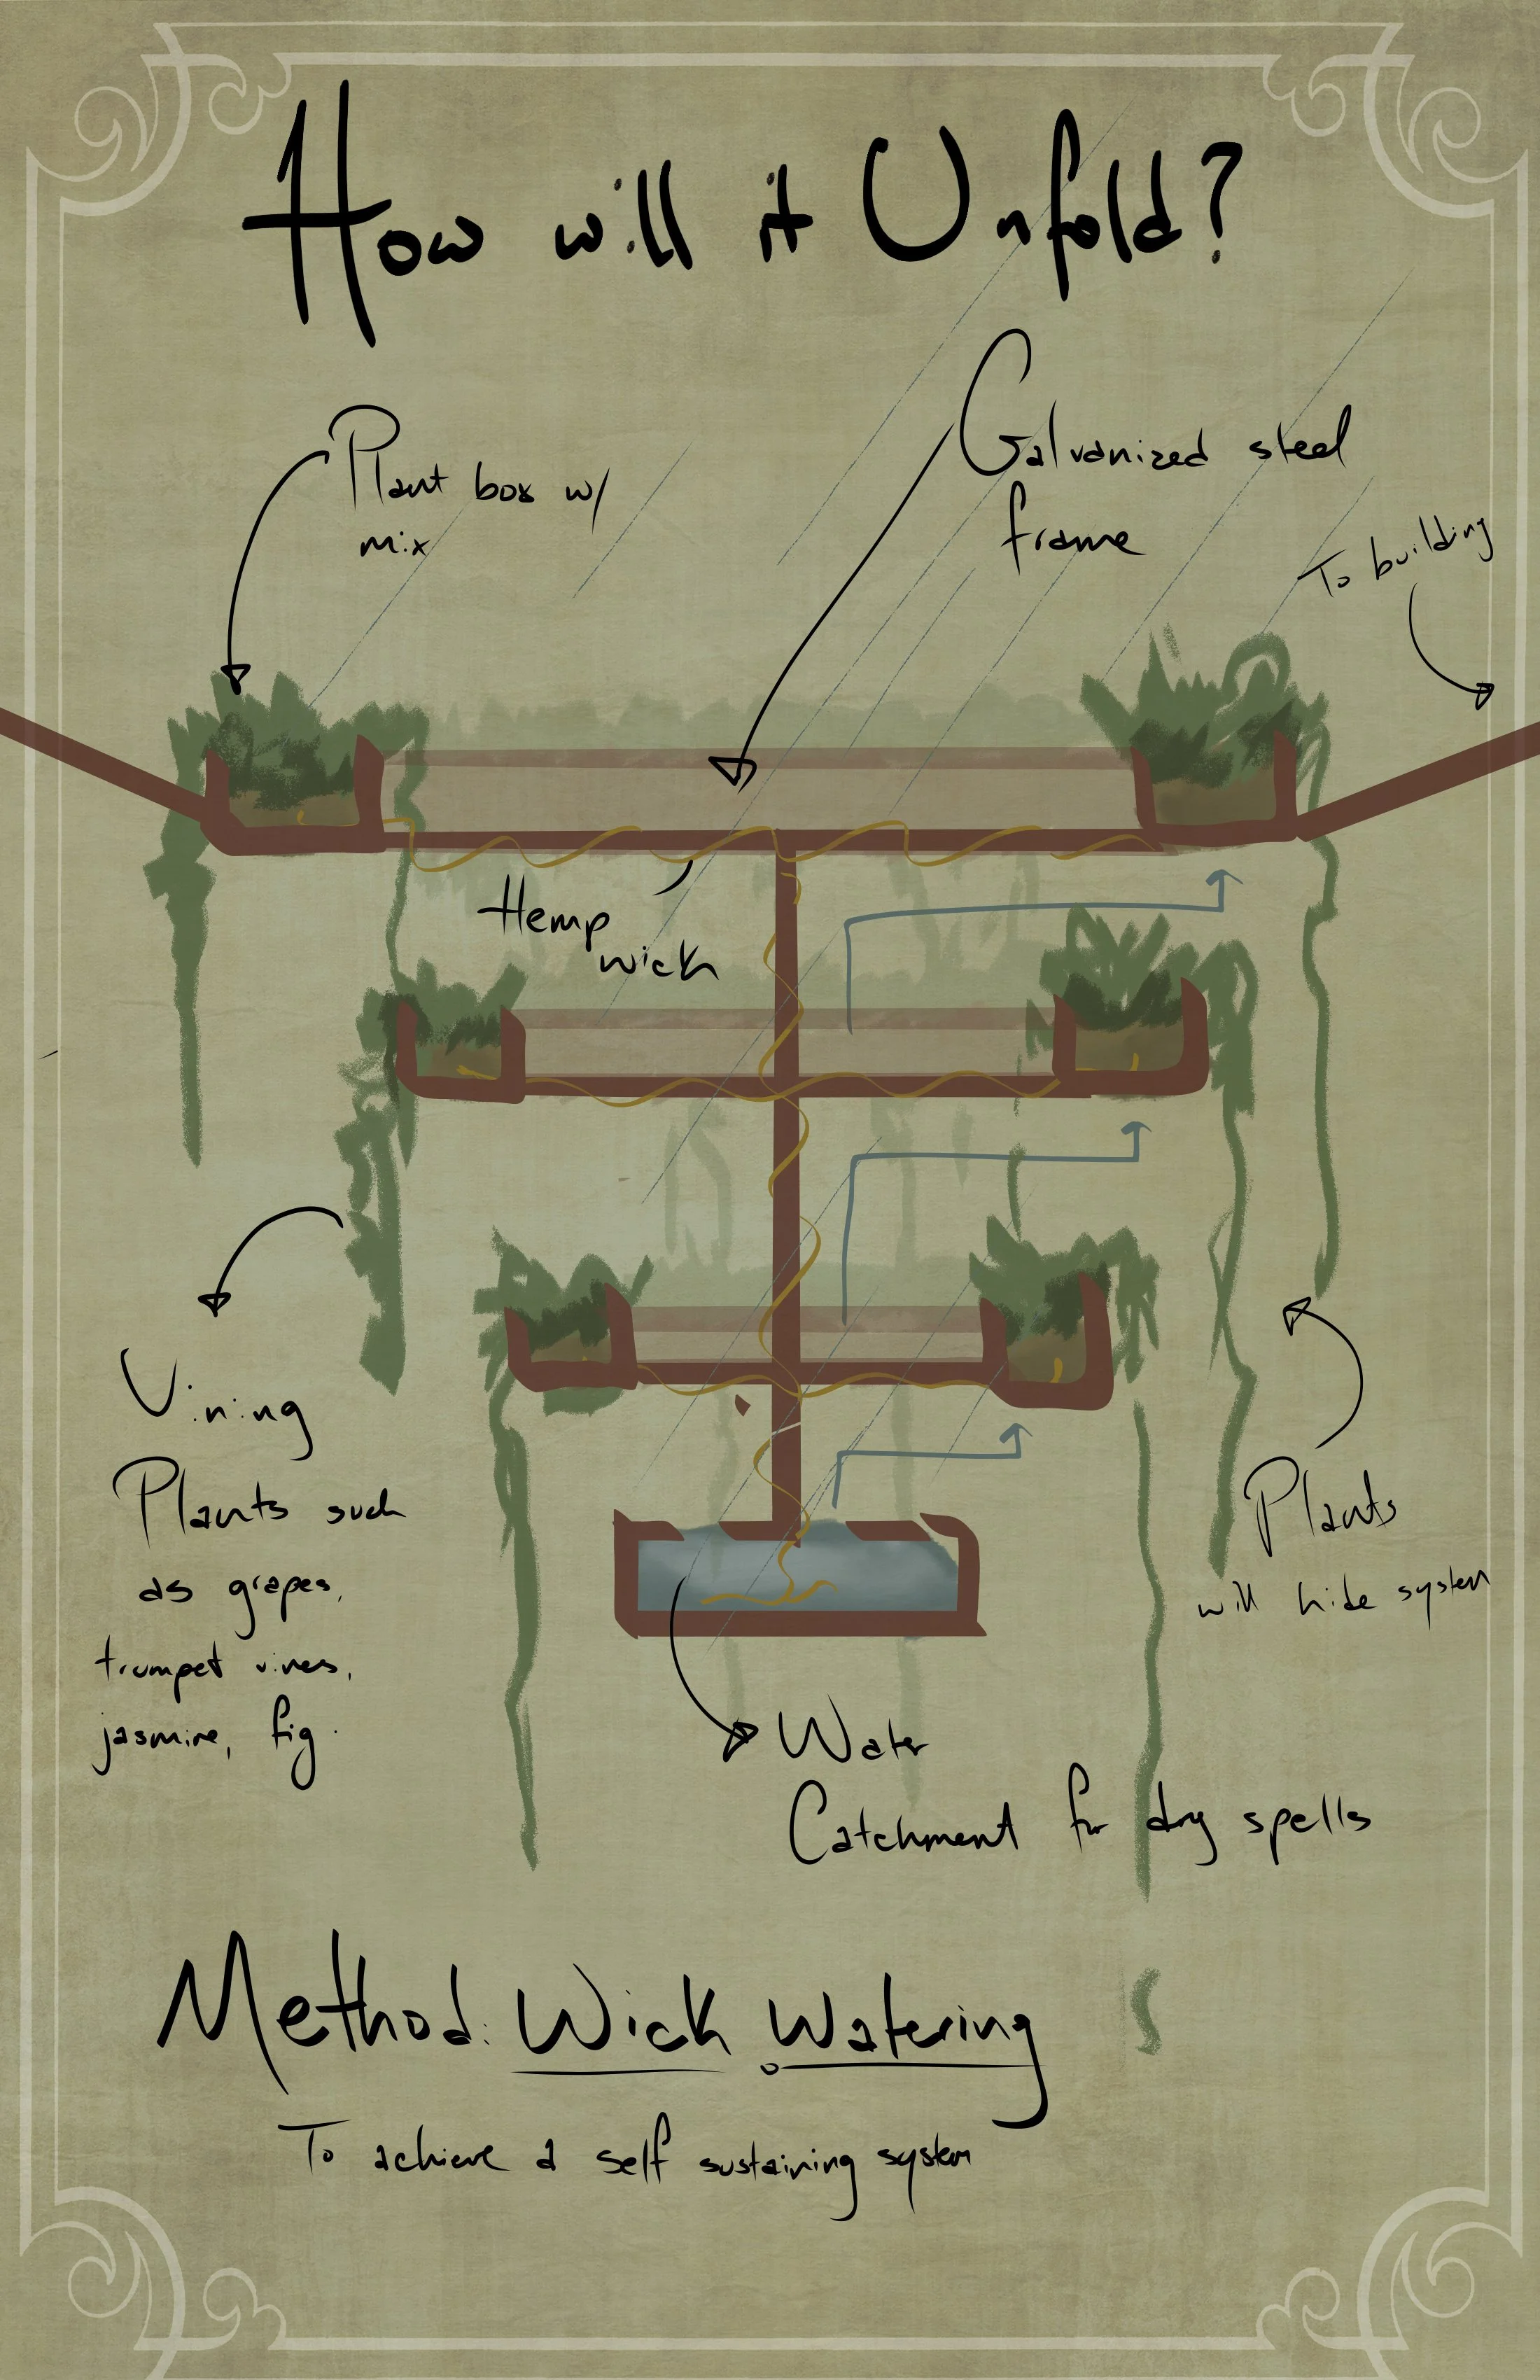 How will it Unfold?
Plant box w/
mix
Galvanized steel
frame
To building
Hemp
wick
Vining
Plants such
as grapes,
trumpet vines,
jasmine, fig.
Plants
will hide system
Water
Catchment for dry spells
Method: Wick Watering
To achieve a self sustaining system